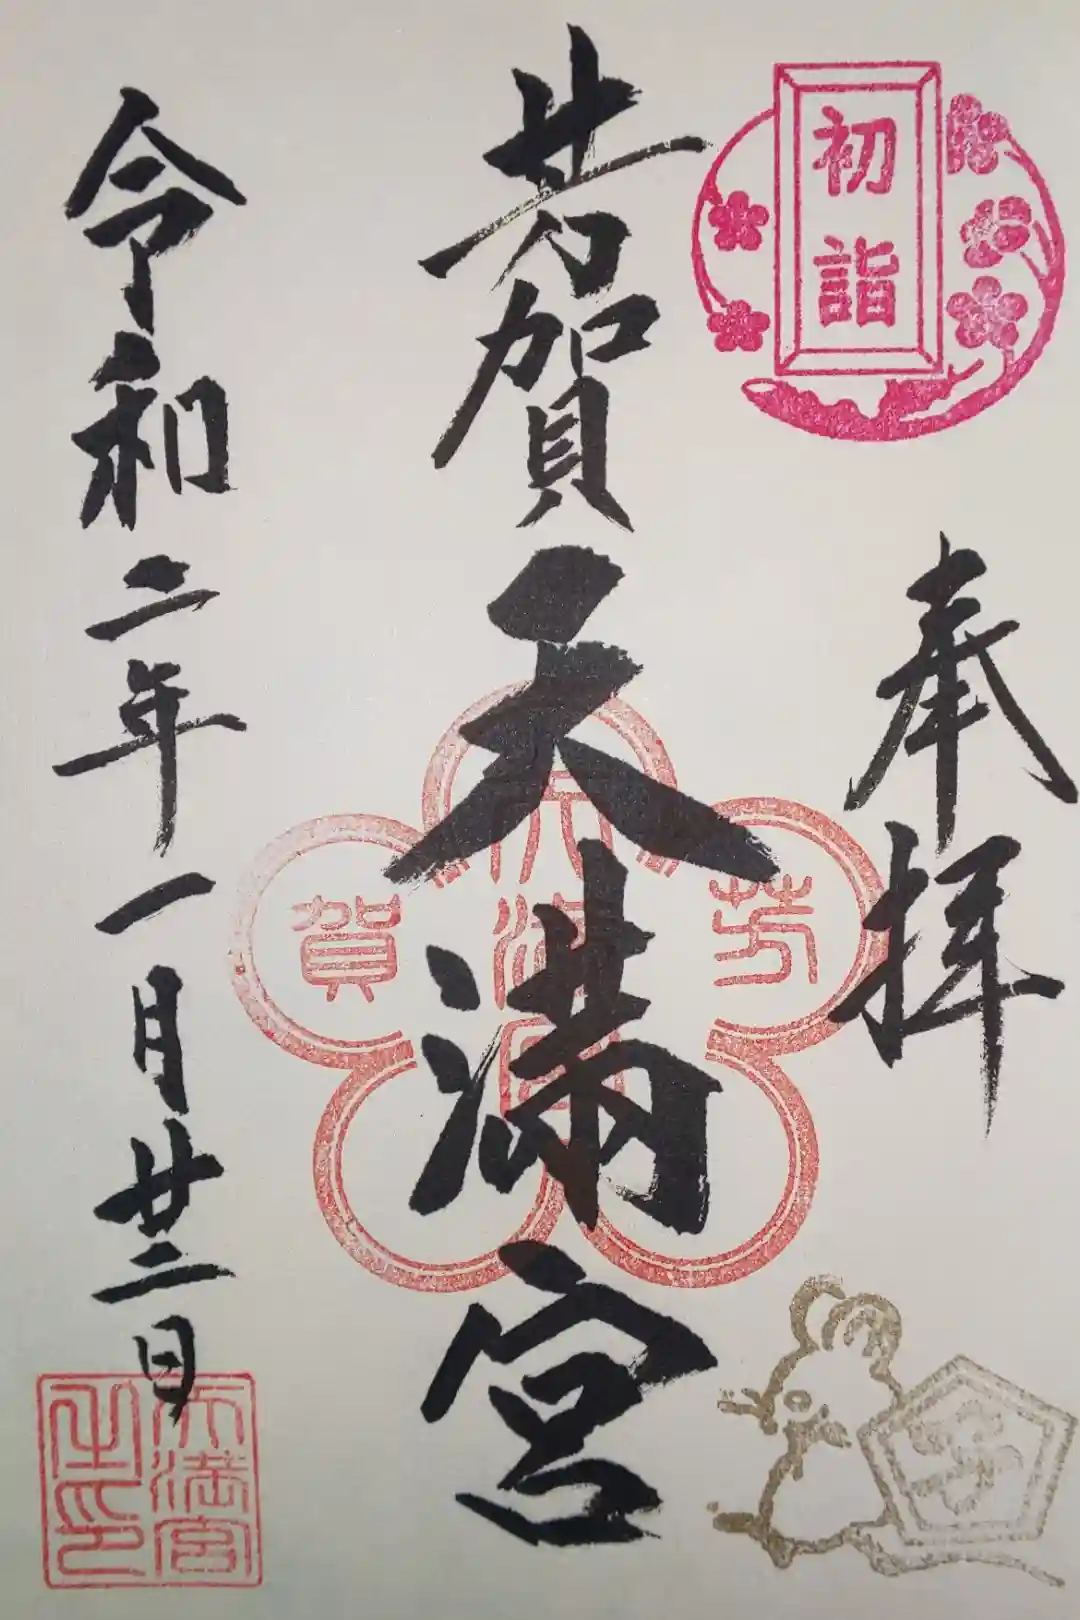 初詣
奉拝
芳賀天満宮
芳賀
天満宮
子
令和二年一月廿二日
天満宮
之印